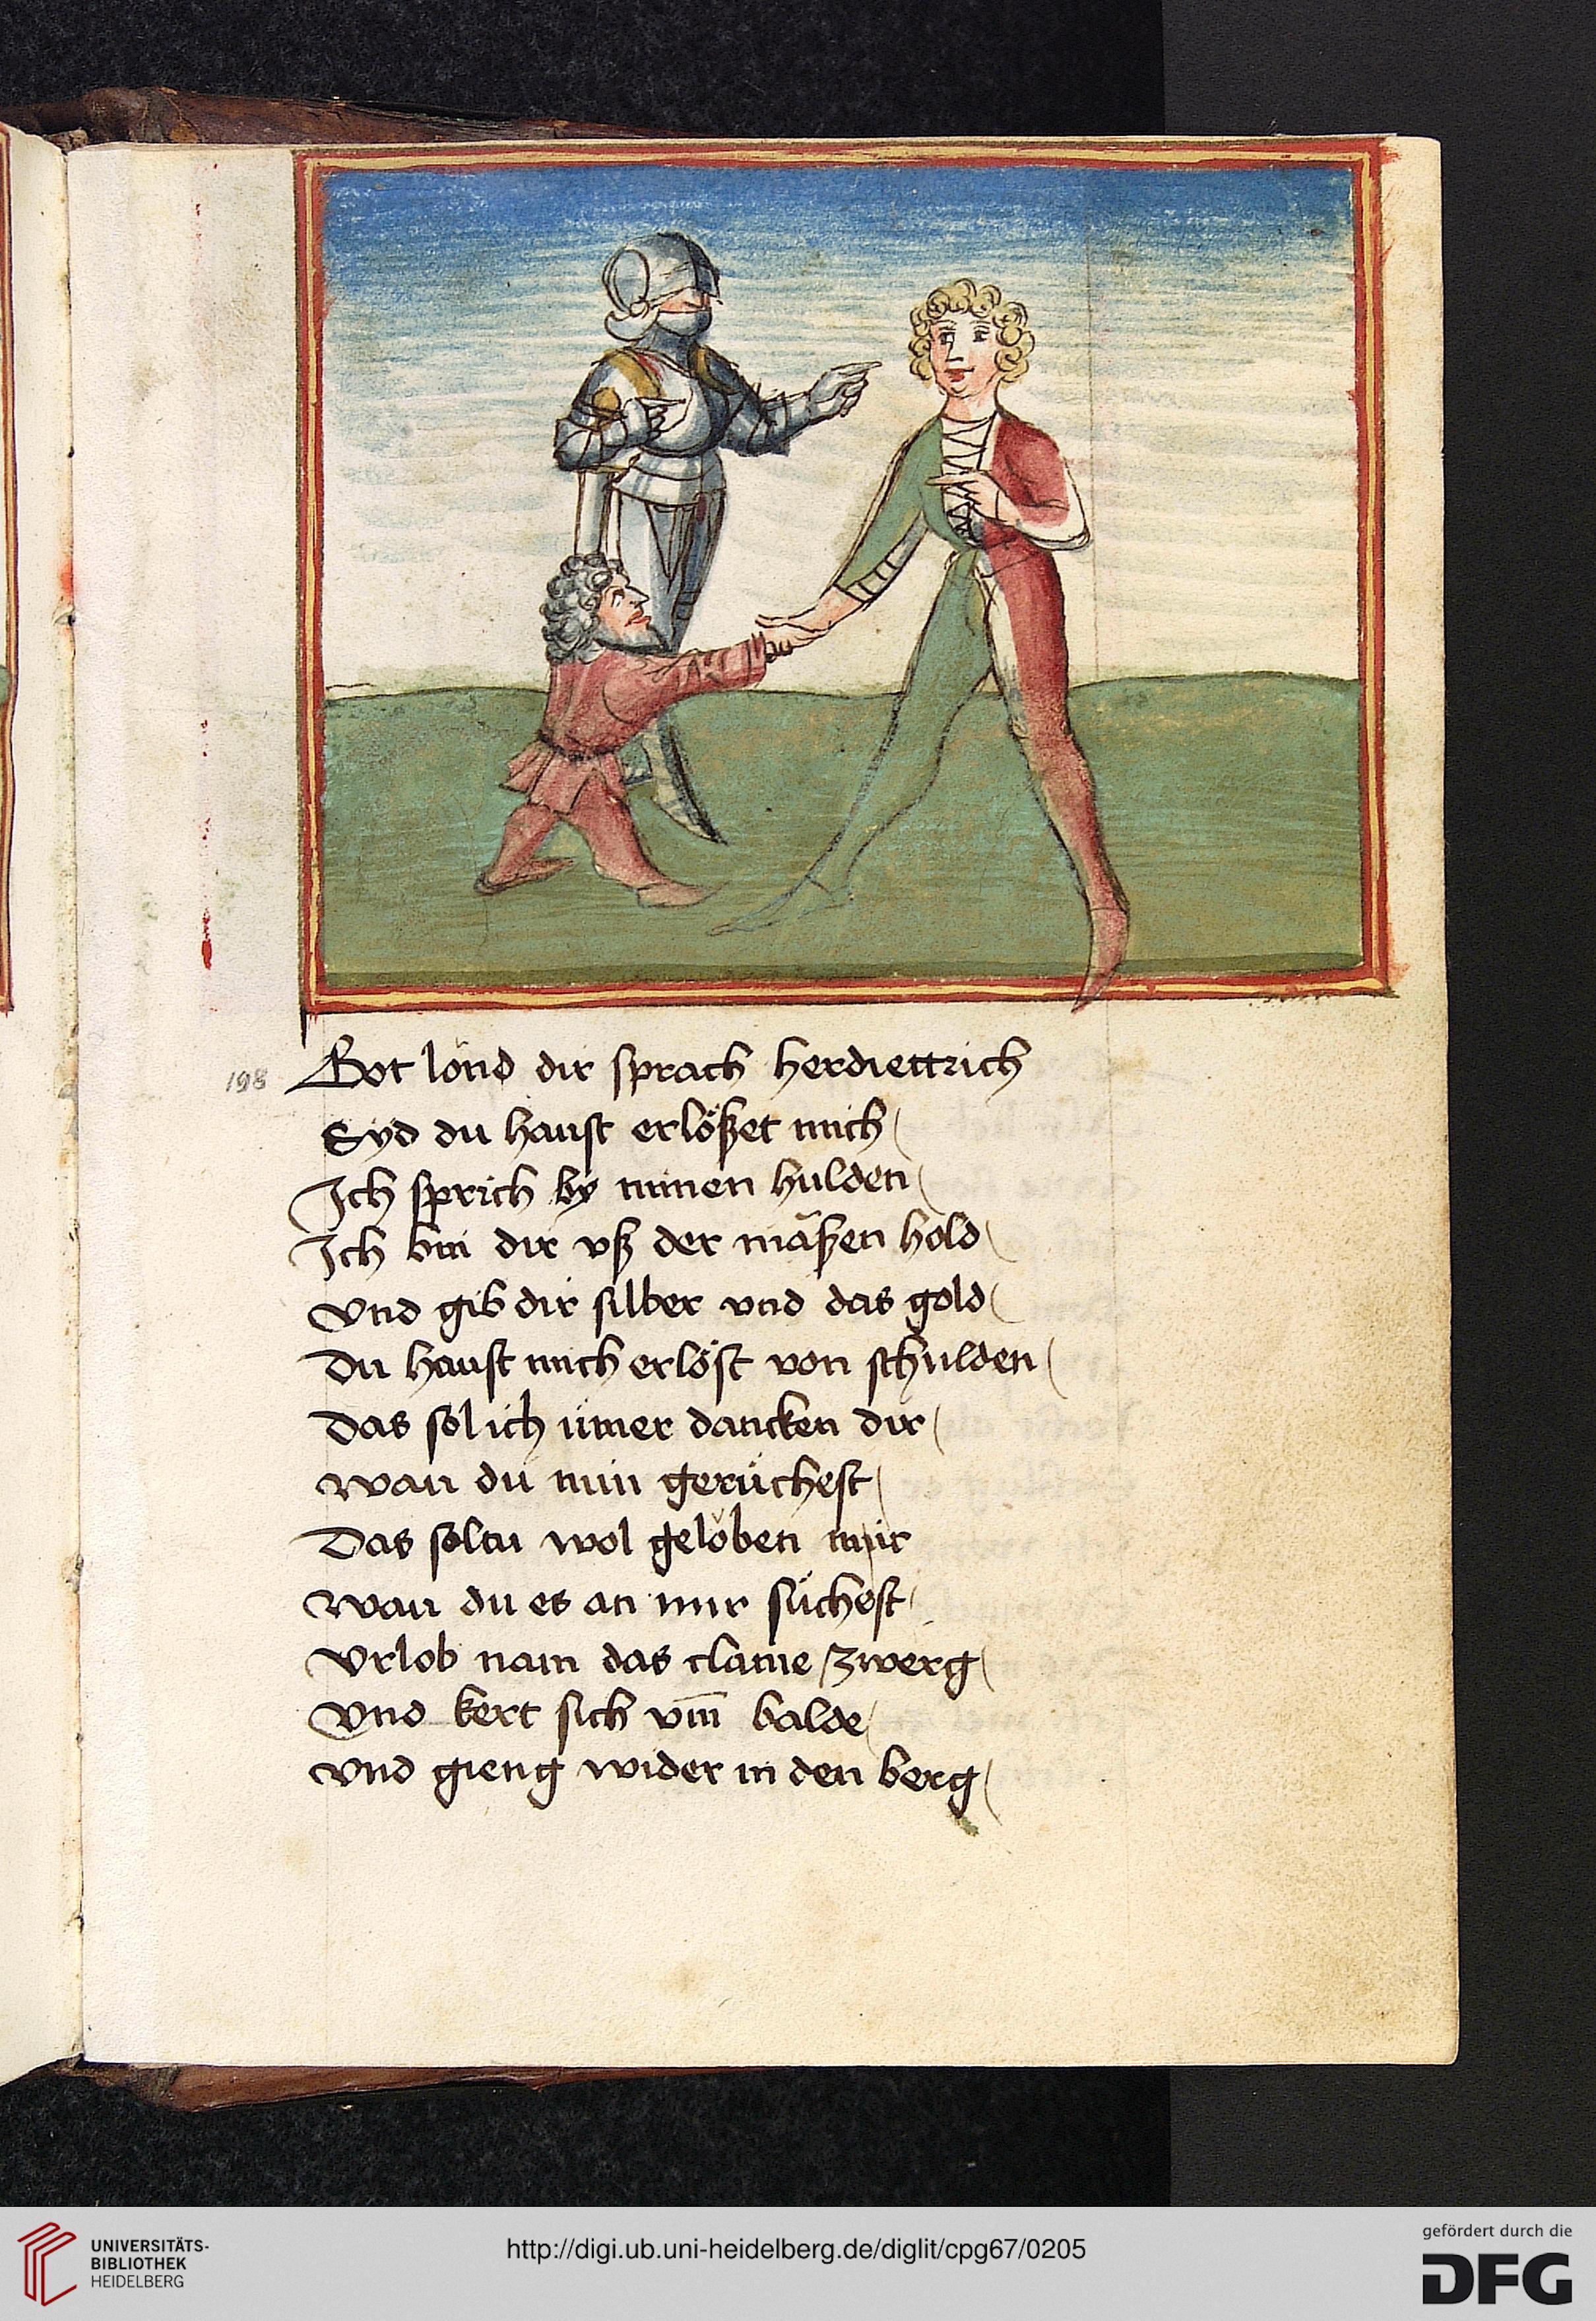 198
Got lönd dir sprach herdiettrich
Syd du haust erlößet mich
Ich sprich by minen hulden
Ich bin dir vß der mäßen hold
Vnd gib dir silber vnd das gold
Du haust mich erlöst von schulden
Das sol ich ümer dancken dir
Wan du min gerüchest
Das soltu wol gelöben mir
Wan du es an mir süchest
Vrlob nam das claine zwerg
Vnd kert sich vm̄ balde
Vnd gieng wider in den berg
UNIVERSITÄTS-
BIBLIOTHEK
HEIDELBERG
http://digi.ub.uni-heidelberg.de/diglit/cpg67/0205
gefördert durch die
DFG